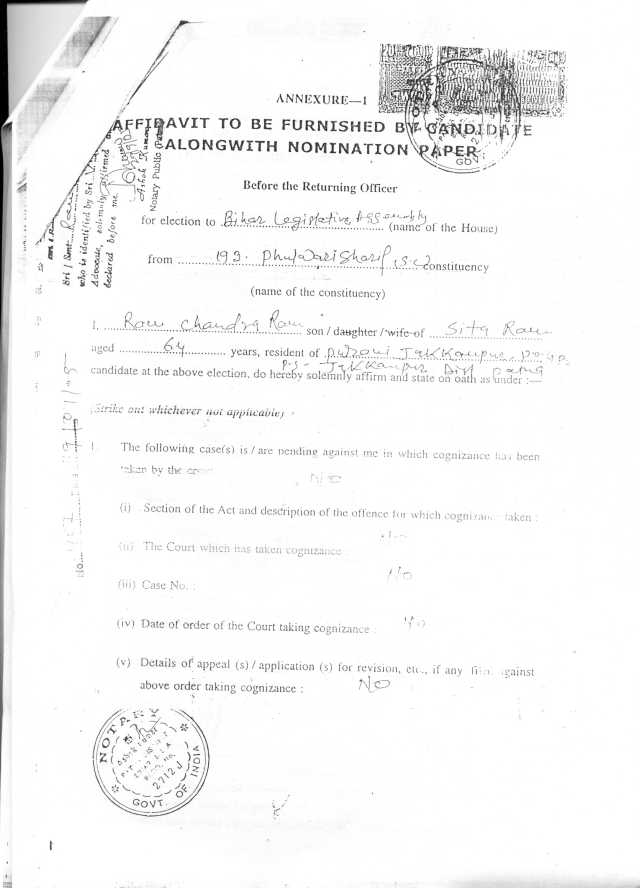 ANNEXURE—I
AFFIDAVIT TO BE FURNISHED BY CANDIDATE
ALONGWITH NOMINATION PAPER
Before the Returning Officer
for election to Bihar Legislative Assembly (name of the House)
from 193. Phulwari Sharif, (S.C) constituency
(name of the constituency)
I. Ram Chandra Ram son / daughter / wife of Sita Ram
aged 64 years, resident of Jakkanpur
P.S- Jakkanpur Dist
candidate at the above election, do hereby solemnly affirm and state on oath as under :—
(Strike out whichever not applicable)
1. The following case(s) is / are pending against me in which cognizance has been
taken by the
No
(i) Section of the Act and description of the offence for which cognizance taken :
(ii) The Court which has taken cognizance
No
(iii) Case No. :
(iv) Date of order of the Court taking cognizance : No
(v) Details of appeal (s) / application (s) for revision, etc., if any against
above order taking cognizance : No
Sri / Smt.
who is identified by Sri
Advocate, solemnly affirmed
declared before me.
Ashok Kumar
Notary Public
No.
NOTARY
2712J
GOVT. OF INDIA
1